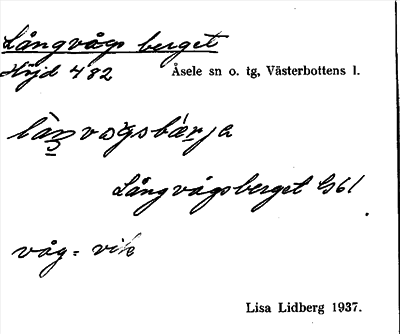 Långvågsberget
Höjd 482 Åsele sn o. tg, Västerbottens l.
Långvågsberget G61
våg = vik
Lisa Lidberg 1937.